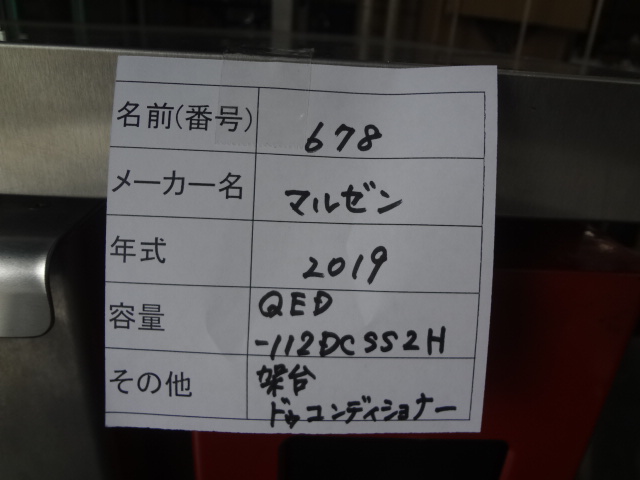 名前(番号) 678
メーカー名 マルゼン
年式 2019
容量 QED
-112DCSS2H
その他 架台
ドゥコンディショナー